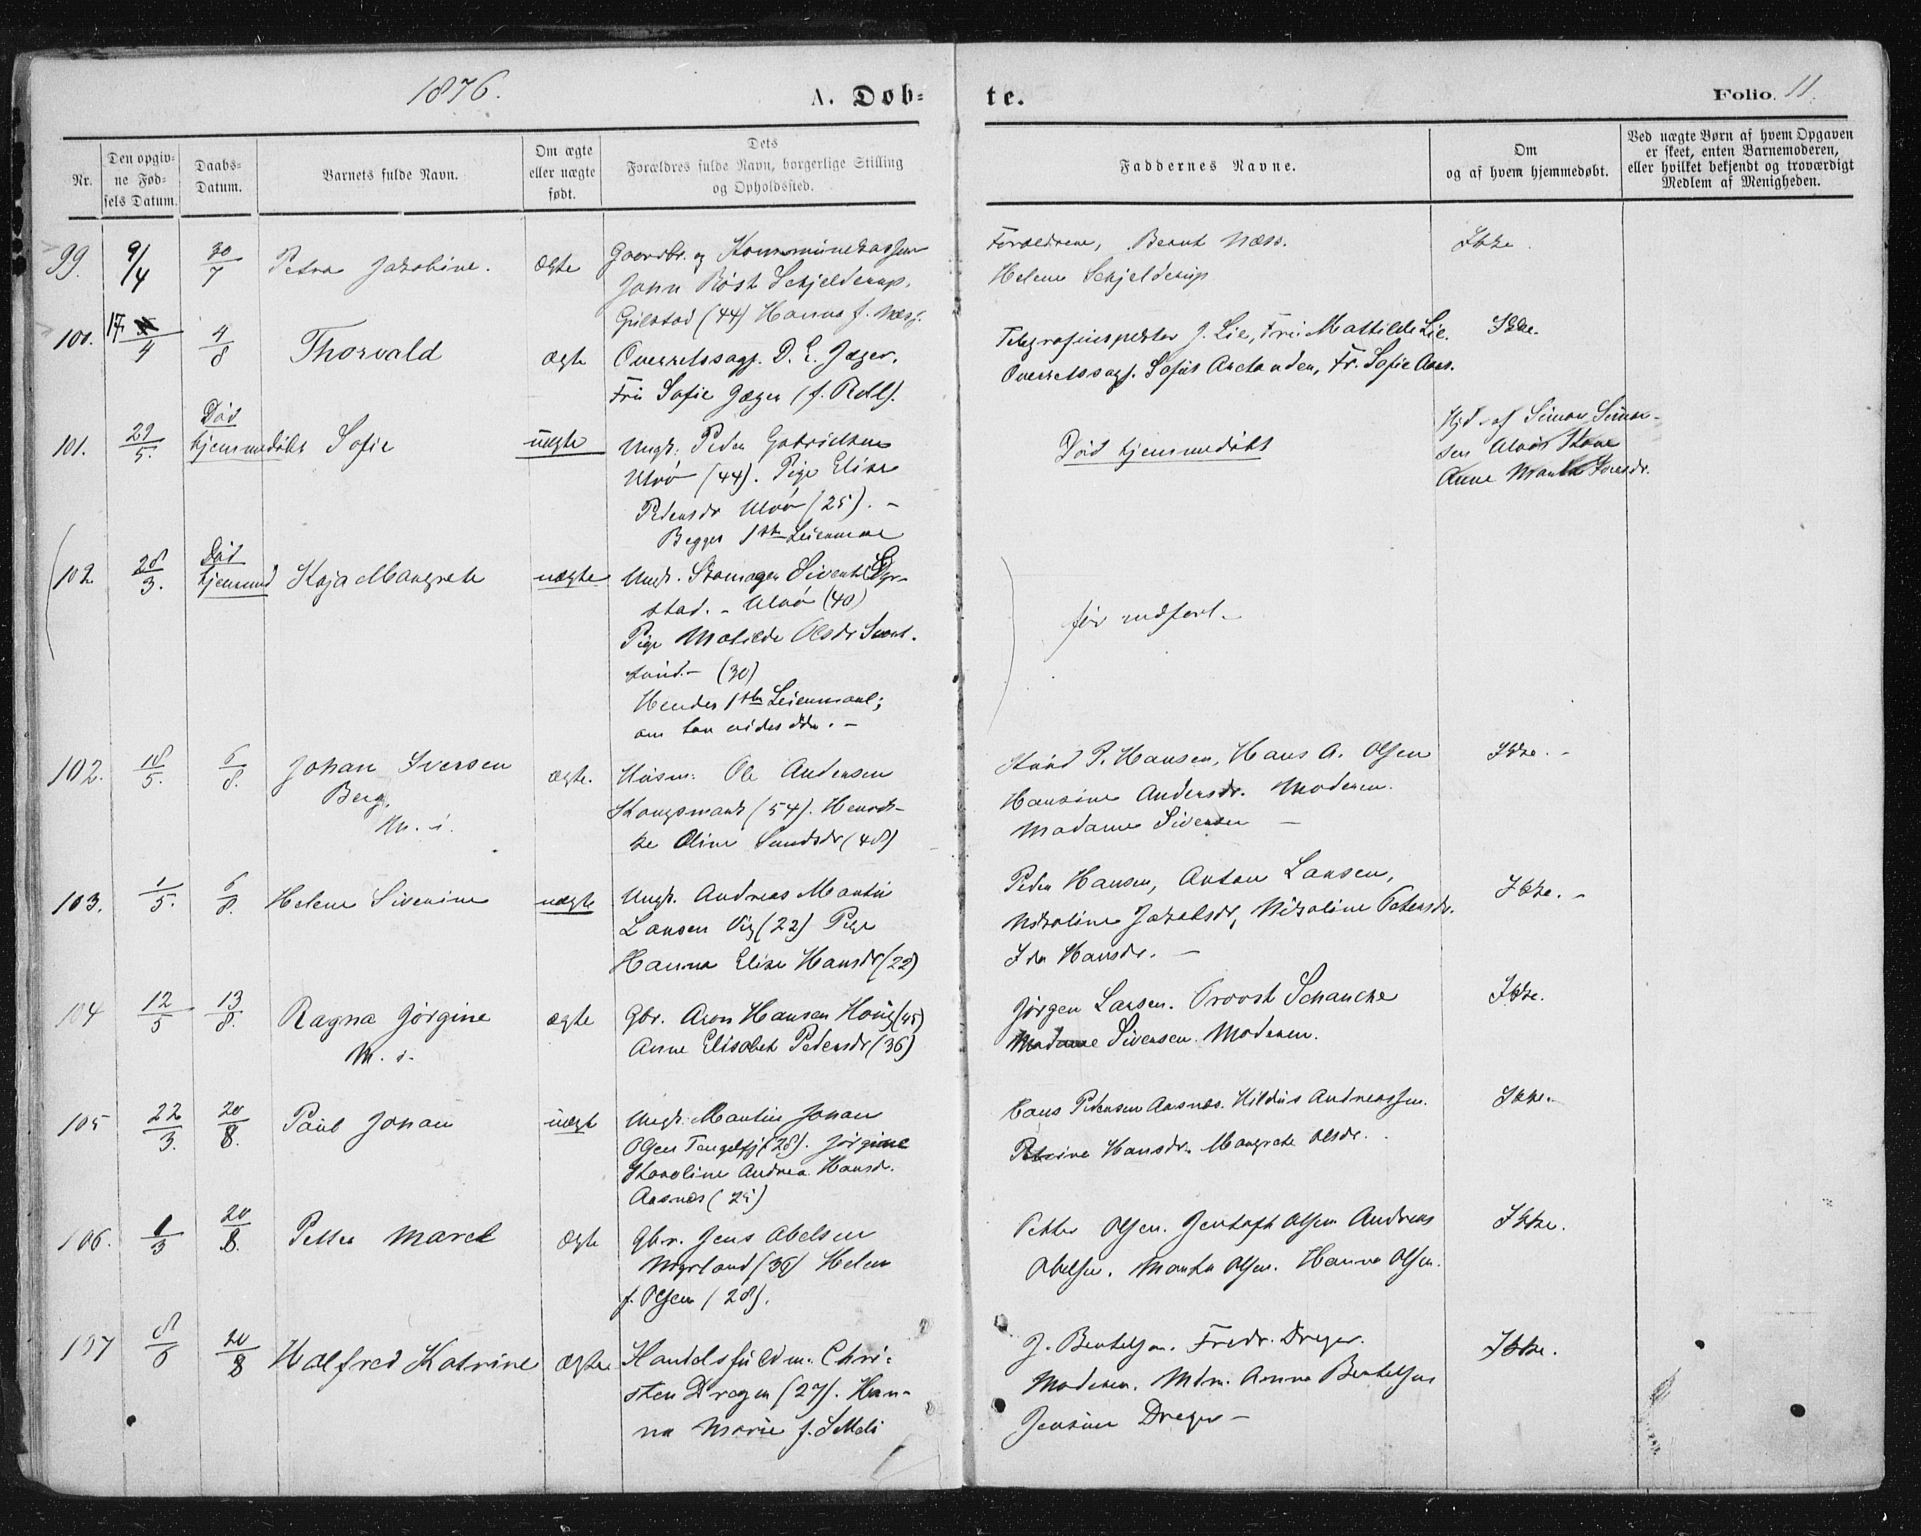 1876.
A. Døb=
te.
Folio. 11.
Nr.
Den opgiv-
ne Fød-
sels Datum.
Daabs-
Datum.
Barnets fulde Navn.
Om ægte
eller uægte
født.
Dets
Forældres fulde Navn, borgerlige Stilling
og Opholdssted.
Faddernes Navne.
Om
og af hvem hjemmedøbt.
Ved uægte Børn af hvem Opgaven
er skeet, enten Barnemoderen,
eller hvilket bekjendt og troværdigt
Medlem af Menigheden.
99. 9/4 30/7 Petra Jakobine. ægte
Gaardbr. og Kommunekasser
John Røst Schjelderup.
(44) Hanna f. Næss.
Forældrene, Bernt Næss.
Helene Schjelderup
Ikke.
100. 17/4 4/8 Thorvald ægte
Overretssagf. D. E. Jæger.
Fru Sofie Jæger (f. Roll).
Telegrafinspektør J. Lie, Fru Mathilde Lie.
Overretssagf. Sofus Arctander, Fr. Sofie Aars.
Ikke.
101. 29/5. Død
hjemmedøbt Sofie uægte
Ungk. Peder Gabrielsen
Ulvø (44). Pige Elise
Pedersdr Ulvø (25). -
Begges 1ste Leiermaal
Død hjemmedøbt
Hjd. af Simon Simon-
sen Ulvøs Kone
Anne Marta
102. 28/3. Død
hjemmed Kaja Margrete uægte
Ungk. Sivert
stad. - Ulvø (40)
Pige Matilde Olsdr Sort-
land. - (30)
Hendes 1ste Leiermaal;
om han vides ikke. -
før indført. -
102. 18/5. 6/8. Johan Iversen
Berg.
M. i. ægte.
Husm. Ole Andersen
Kongsmark (54). Henrik-
ke Oline (48)
Knud P. Hansen, Hans A. Olsen
Hansine Andersdr. Moderen.
Madame Siversen -
Ikke. -
103. 1/5. 6/8. Helene Siverine uægte
Ungk. Andreas Martin
Larsen Vig (22) Pige
Hanna Elise Hansdr (22)
Peder Hansen, Anton Larsen,
Nikoline Jakobsdr, Nikoline Petersdr.
Ida Hansdr. -
Ikke. -
104 12/5 13/8. Ragna Jørgine
M. i. ægte
Gbr. Aron Hansen Houg (45)
Anne Elisabet Pedersdr (36)
Jørgen Larsen. Provst Schancke
Madame Siversen. Moderen.
Ikke.
105 22/3. 20/8. Paul Johan uægt
Ungk. Martin Johan
Olsen Tengelfj (28). Jørgine
Karoline Andrea Hansdr.
Aasnæs (25)
Hans Pedersen Aasnæs. Hildus Andreassen.
Hansdr. Margrete Olsdr.
Ikke.
106. 1/3 20/8. Petter Maret ægte
Gbr. Jens Abelsen
Myrland (36) Helene
f. Olsen (28).
Petter Olsen. Jentoft Olsen Andreas
Abelsen. Marta Olsen. Hanna Olsen.
Ikke.
107 8/6 20/8 Walfred Katrine ægte
Handelsfuldm. Chri-
sten Dreyer (27). Han-
na Marie f.
J. Bertelsen. Fredr. Dreyer.
Moderen. Mdm. Anna Bertelsen
Jensine Dreyer -
Ikke.